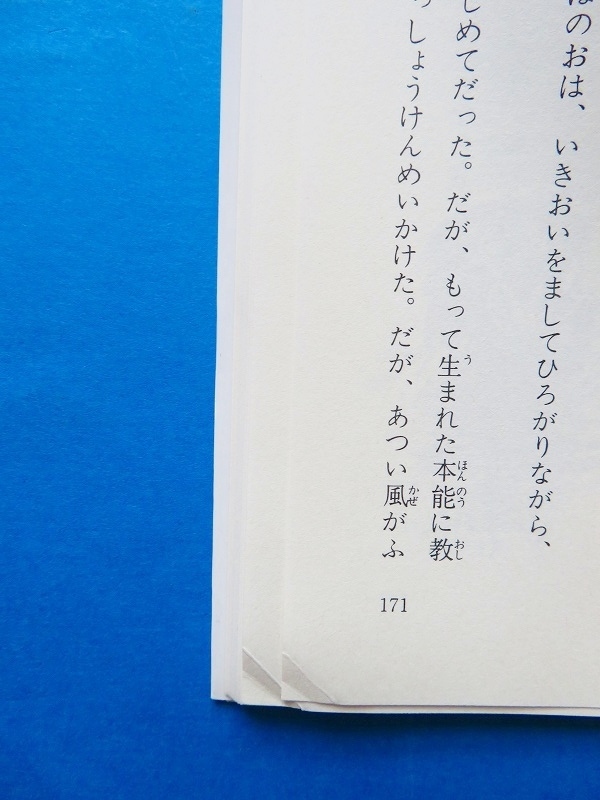 のおは、いきおいをましてひろがりながら、
じめてだった。だが、もって生まれた本能に教
しょうけんめいかけた。だが、あつい風がふ
171